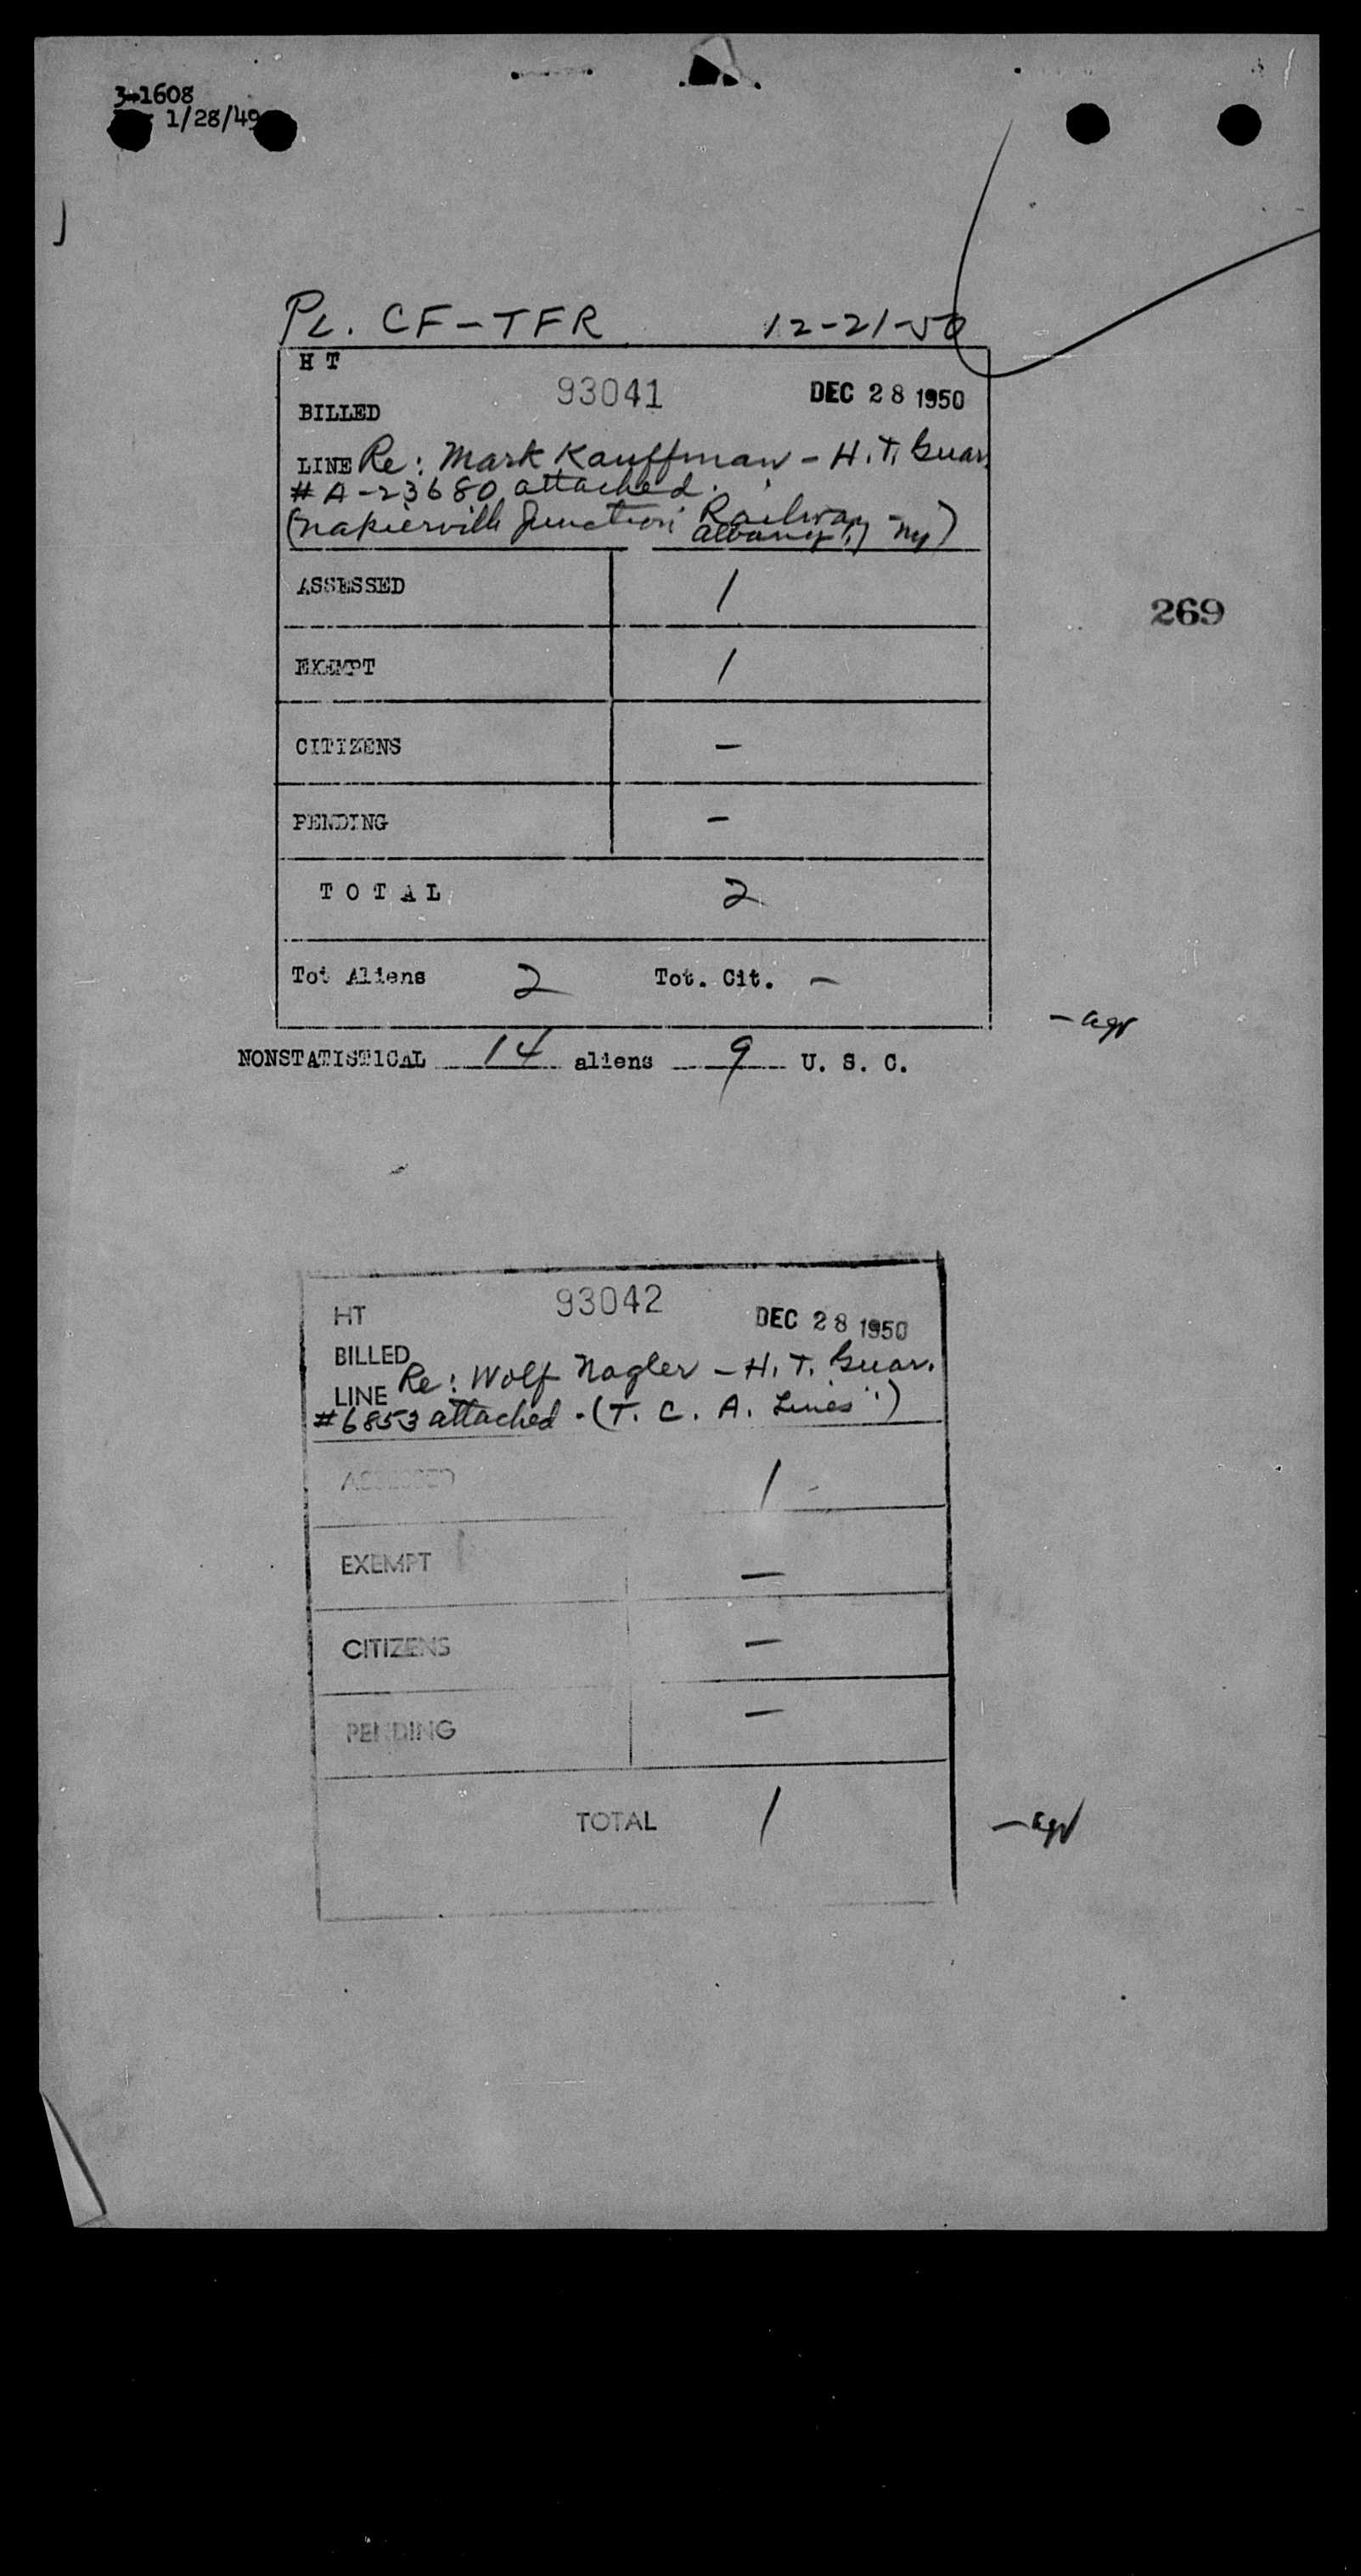 3-1608
1/28/49
PL. CF-TFR 12-21-50
H T
93041 DEC 28 1950
BILLED
LINE Re: Mark Kauffman - H.T. Guar.
# A-23680 attached.
(Napierville Junction Railway
Albany, NY)
ASSESSED 1
269
EXEMPT 1
CITIZENS -
PENDING -
TOTAL 2
Tot Aliens 2 Tot. Cit. -
NONSTATISTICAL 14 aliens 9 U. S. C.
HT 93042 DEC 28 1950
BILLED
LINE Re: Wolf Nagler - H. T. Guar.
#6853 attached. (T. C. A. Lines")
ASSESSED 1
EXEMPT -
CITIZENS -
PENDING -
TOTAL 1